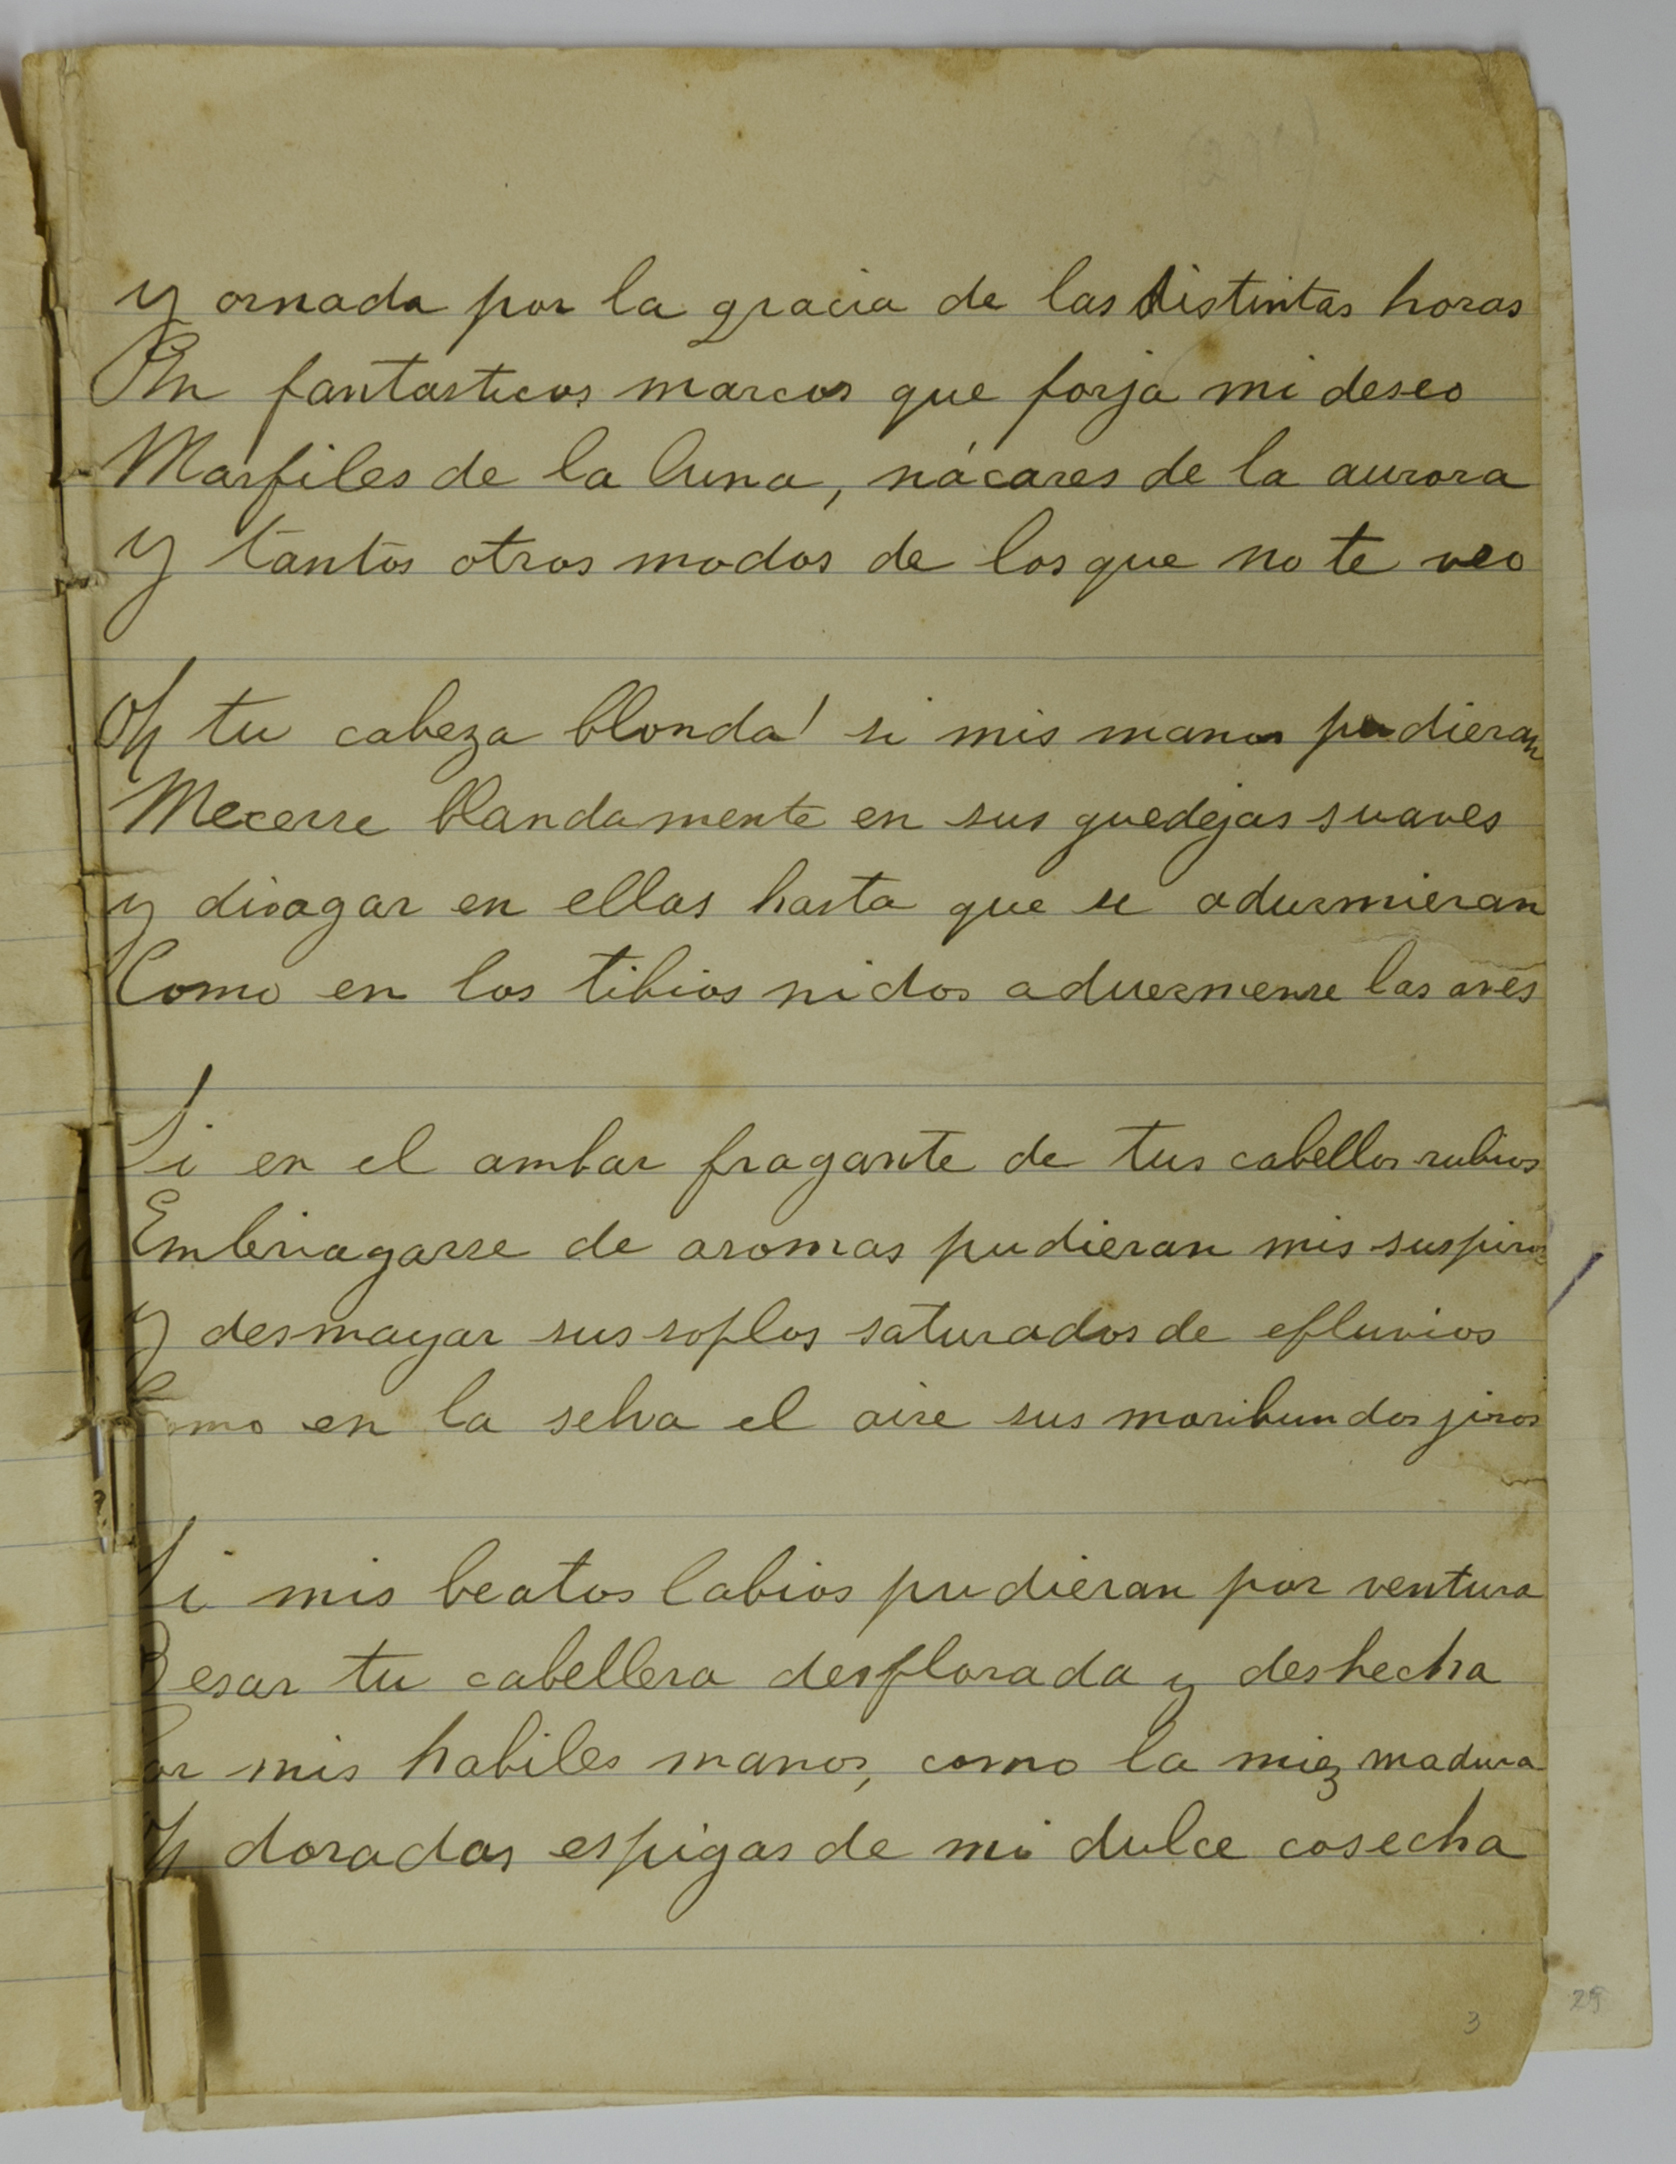 y ornada por la gracia de las distintas horas
En fantasticos marcos que forja mi deseo
Marfiles de la luna, nácares de la aurora
y tantos otros modos de los que no te veo
Oh tu cabeza blonda! si mis manos pudieran
Mecerse blandamente en sus guedejas suaves
y divagar en ellas hasta que se adurmieran
Como en los tibios nidos aduermense las aves
Si en el ambar fragante de tus cabellos rubios
Embriagarse de aromas pudieran mis suspiros
y desmayar sus soplos saturados de efluvios
Como en la selva el aire sus moribundos jiros
Si mis beatos labios pudieran por ventura
Besar tu cabellera desflorada y deshecha
Por mis habiles manos, como la miez madura
Oh doradas espigas de mi dulce cosecha
3
25